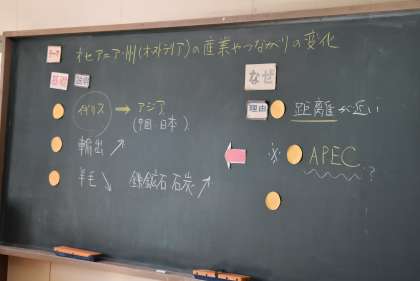 オセアニア州(オーストラリア)の産業やつながりの変化
なぜ
イギリス → アジア
(中国・日本)
輸出 ↗
羊毛 ↘ 鉄鉱石 石炭 ↗
理由
距離が近い
※ APEC ?